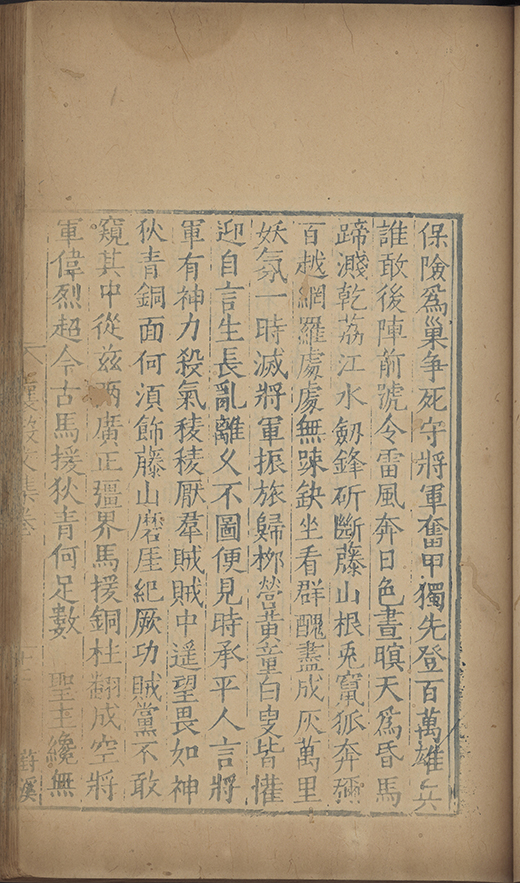 保險爲巢争死守將軍奮甲獨先登百萬雄兵
誰敢後陣前號令雷風奔日色晝暝天爲昏馬
蹄濺乾荔江水劔鋒斫斷藤山根兎竄狐奔彌
百越網羅處處無踈缺坐看群醜盡成灰萬里
妖氛一時滅將軍振旅歸柳營黃童白叟皆懽
迎自言生長亂離乂不圖便見時承平人言將
軍有神力殺氣稜稜厭羣賊賊中遥望畏如神
狄青銅面何湏飾藤山磨崖紀厥功賊黨不敢
窺其中從兹兩廣正疆界馬援銅柱翻成空將
軍偉烈超今古馬援狄青何足數　聖主纔無